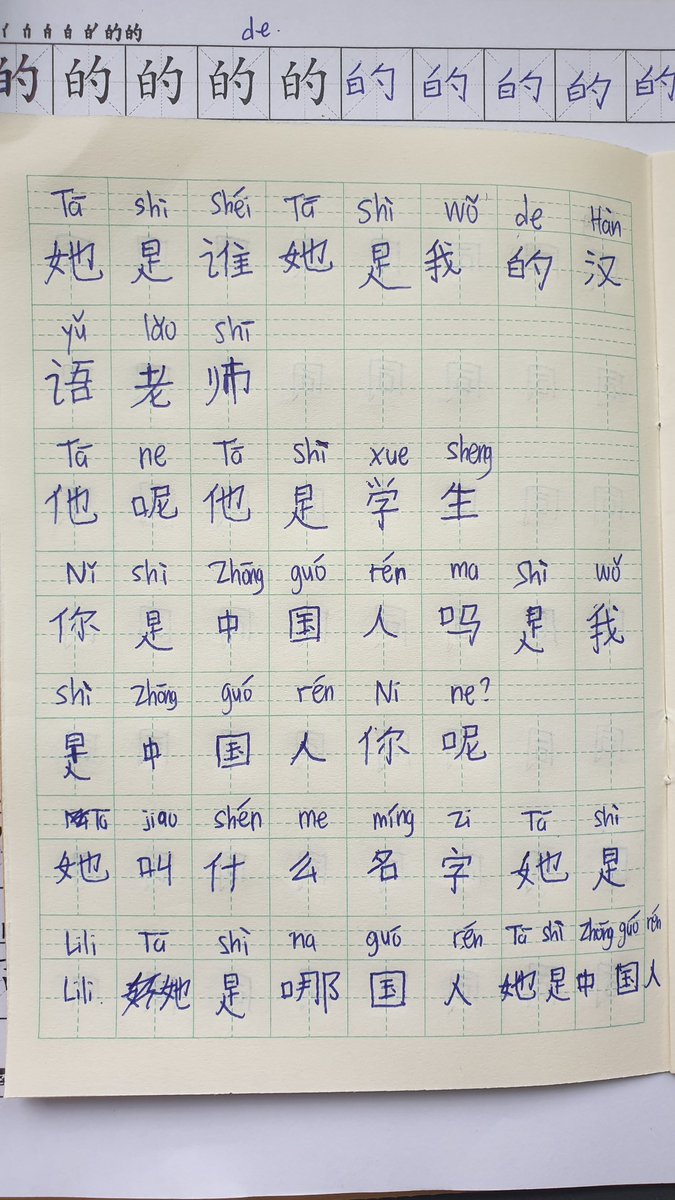 de.
的 的 的 的 的 的 的 的 的 的
Tā shì Shéi Tā Shì wǒ de Hàn
她 是 谁 她 是 我 的 汉
yǔ lǎo shī
语 老 师
Tā ne Tā shì xue sheng
他 呢 他 是 学 生
Nǐ shì Zhōng guó rén ma Shì wǒ
你 是 中 国 人 吗 是 我
shì Zhōng guó rén Ni ne?
是 中 国 人 你 呢
Tā jiao shén me míng zi Tā shì
她 叫 什 么 名 字 她 是
Lili Tā shì na guó rén Tā shì Zhōng guó rén
Lili. 她 是 哪 国 人 她 是 中 国 人